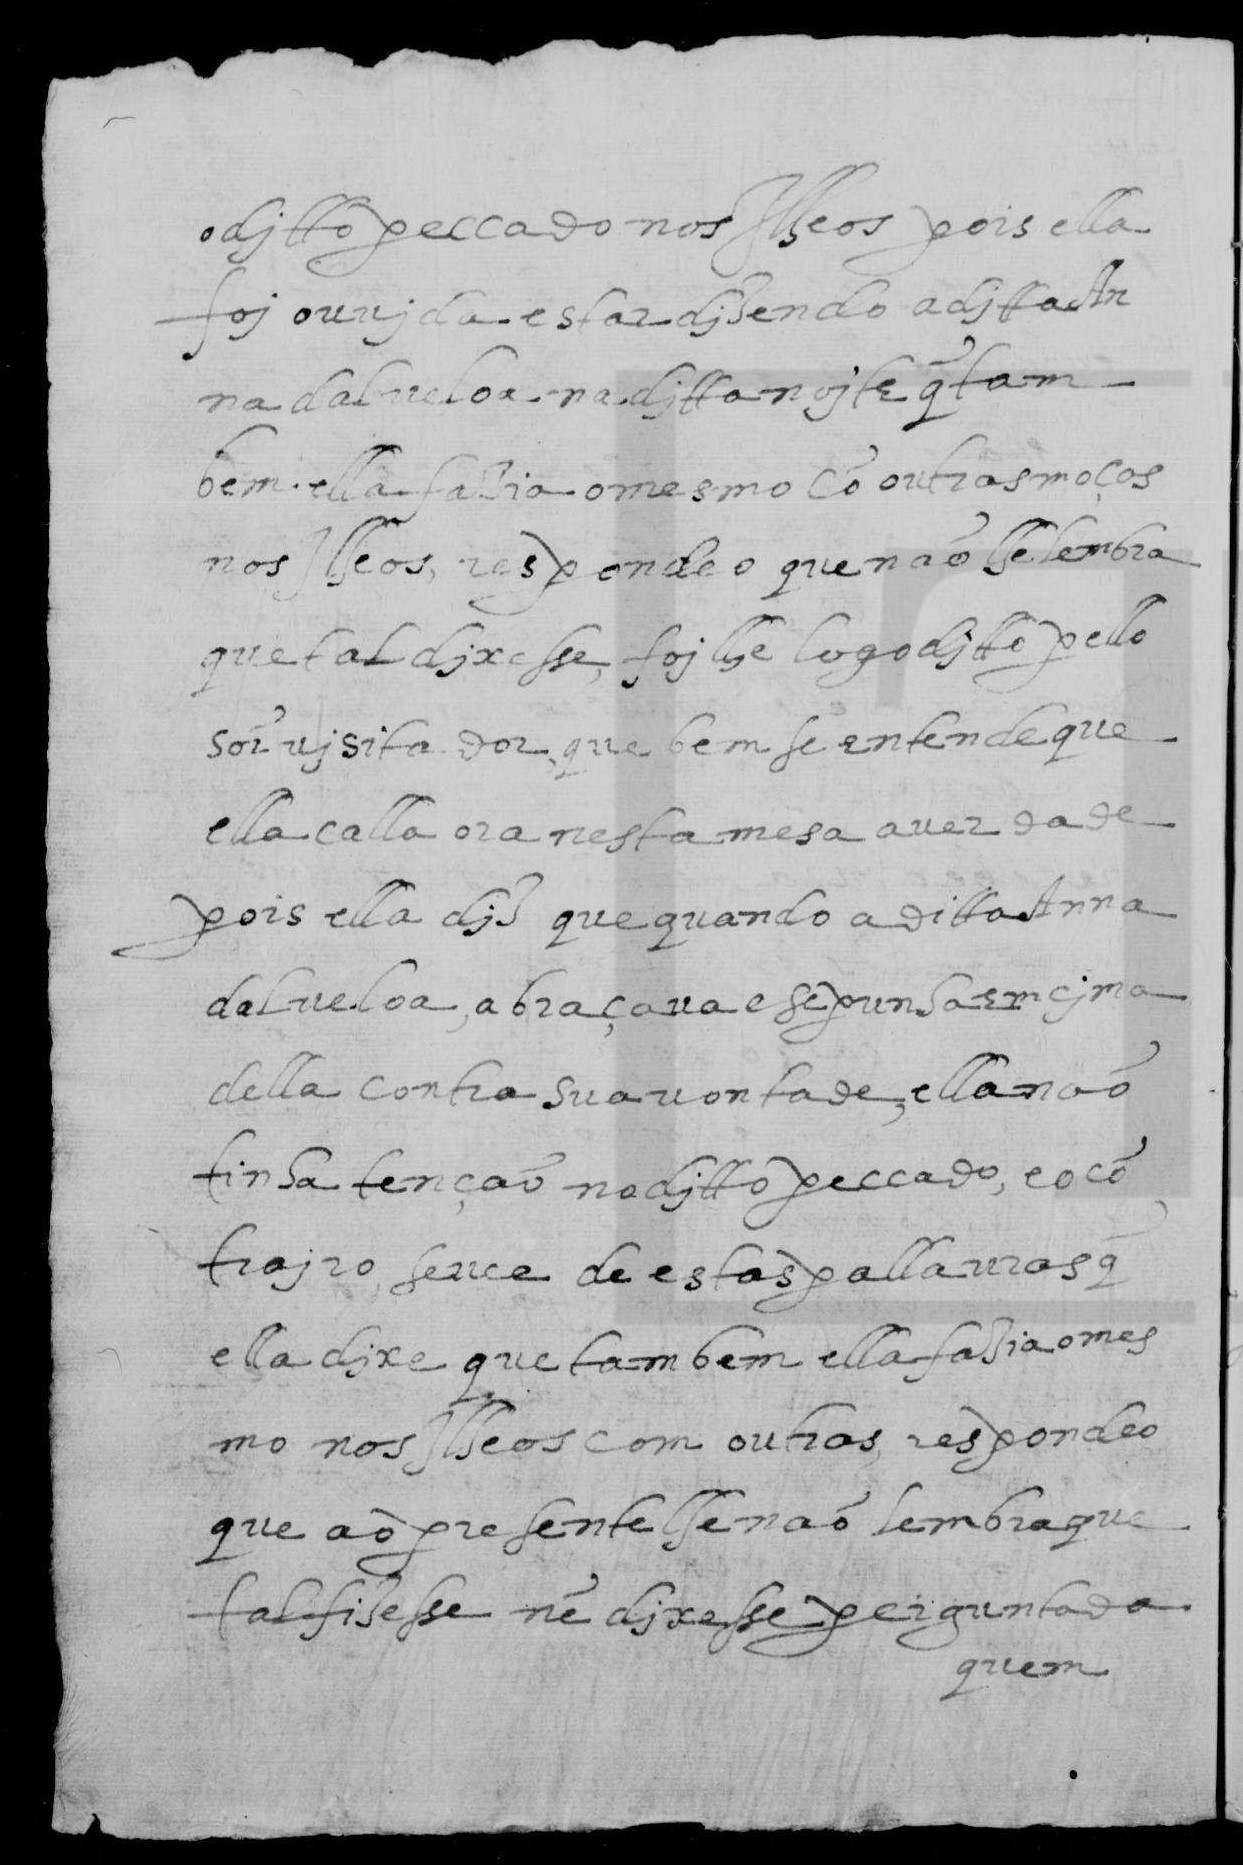 o djtto peccado nos Ilheos pois ella
foj ouujda estar djzendo a djtta An
na dalueloa na djtta nojte q̃ tam
bem ella fazia o mesmo cõ outras moças
nos Ilheos, respondeo que naõ lhe lembra
que tal djxesse, foj lhe logo djtto pello
sõr ujsitador, que bem se entende que
ella calla ora nesta mesa a uerdade
pois ella djz que quando a ditta Anna
dalueloa, abraçaua e se punha em cjma
della contra sua uontade, ella naõ
tinha tençaõ no djtto peccado, e o cõ
trajro, se uee de estas pallauras q̃
ella djxe que tambem ella fazia o mes
mo nos Ilheos com outras, respondeo
que ao presente lhe naõ lembra que
tal fizesse nẽ djxesse perguntada
quem